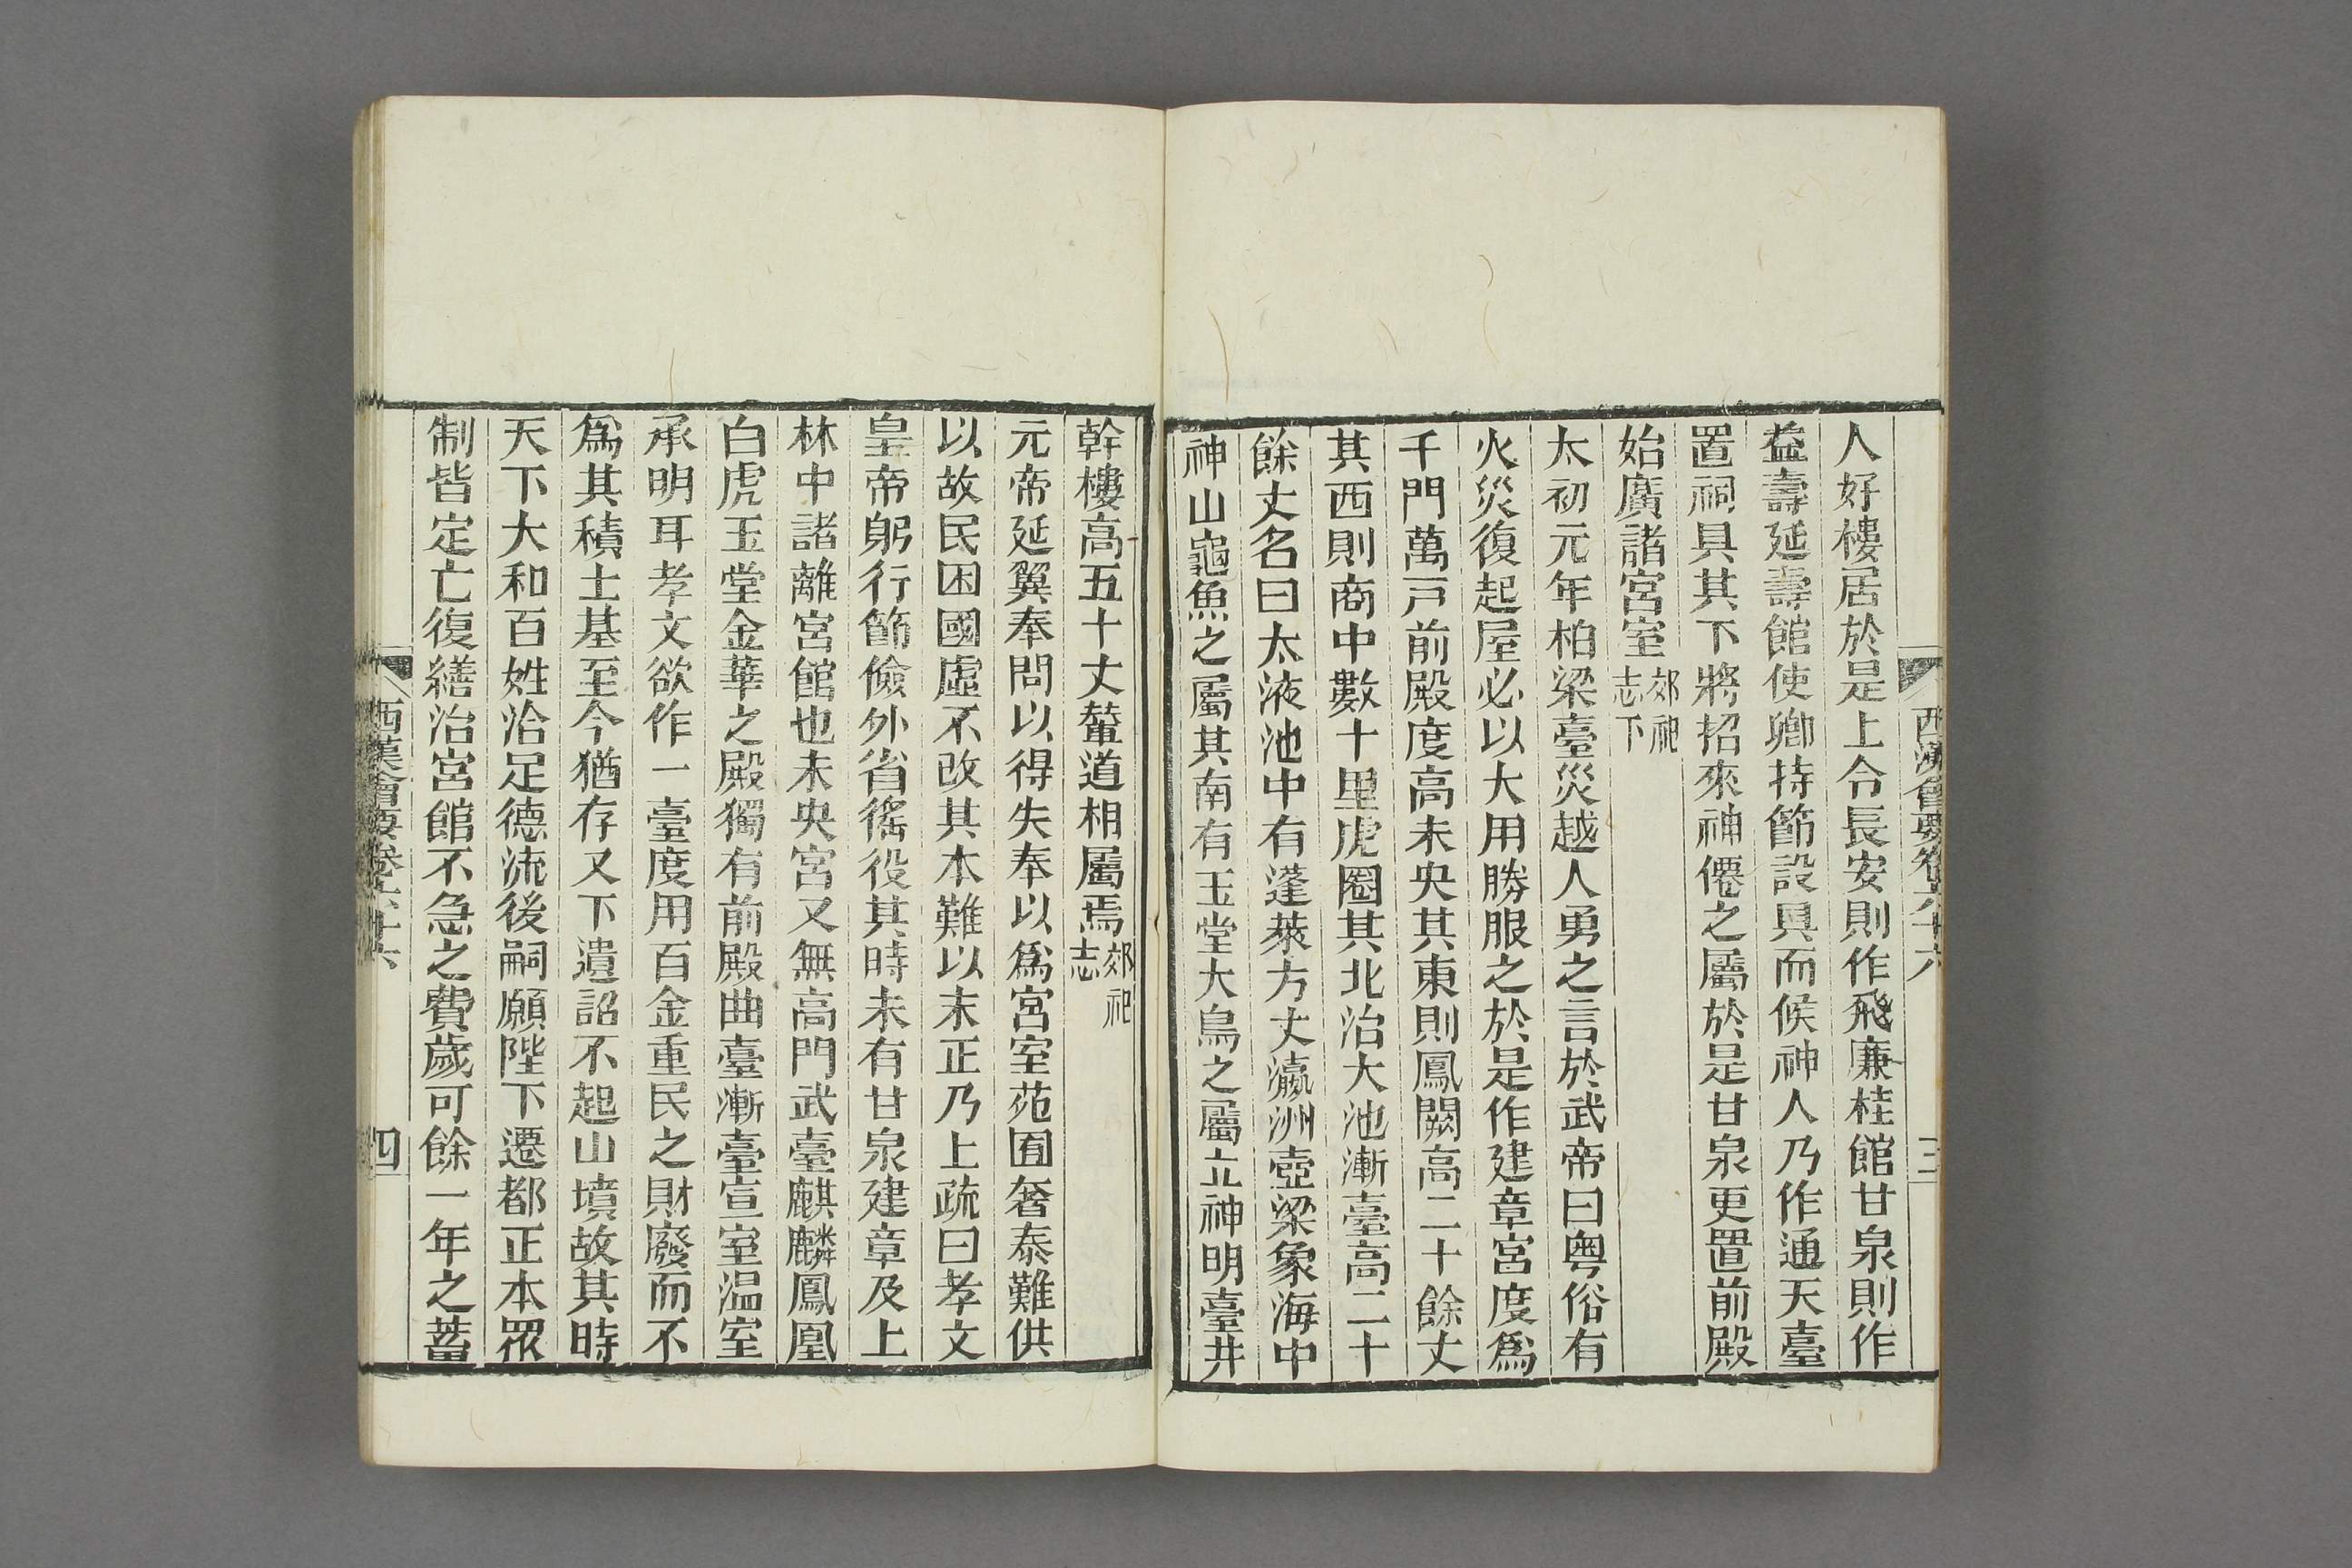 西漢會要卷六十六
三
人好樓居於是上令長安則作飛廉桂館甘泉則作
益壽延壽館使卿持節設具而候神人乃作通天臺
置祠具其下將招來神僊之屬於是甘泉更置前殿
始廣諸宮室郊祀志下
太初元年柏梁臺災越人勇之言於武帝曰粵俗有
火災復起屋必以大用勝服之於是作建章宮度爲
千門萬戸前殿度高未央其東則鳳闕高二十餘丈
其西則商中數十里虎圈其北治大池漸臺高二十
餘丈名曰太液池中有蓬萊方丈瀛洲壺梁象海中
神山龜魚之屬其南有玉堂大鳥之屬立神明臺井
幹樓高五十丈輦道相屬焉郊祀志
元帝延翼奉問以得失奉以爲宮室苑囿奢泰難供
以故民困國虛不改其本難以末正乃上疏曰孝文
皇帝躬行節儉外省徭役其時未有甘泉建章及上
林中諸離宮館也未央宮又無高門武臺麒麟鳳凰
白虎玉堂金華之殿獨有前殿曲臺漸臺宣室温室
承明耳孝文欲作一臺度用百金重民之財廢而不
爲其積土基至今猶存又下遺詔不起山墳故其時
天下大和百姓洽足德流後嗣願陛下遷都正本眾
制皆定亡復繕治宮館不急之費歲可餘一年之蓄
西漢會要卷六十六
四